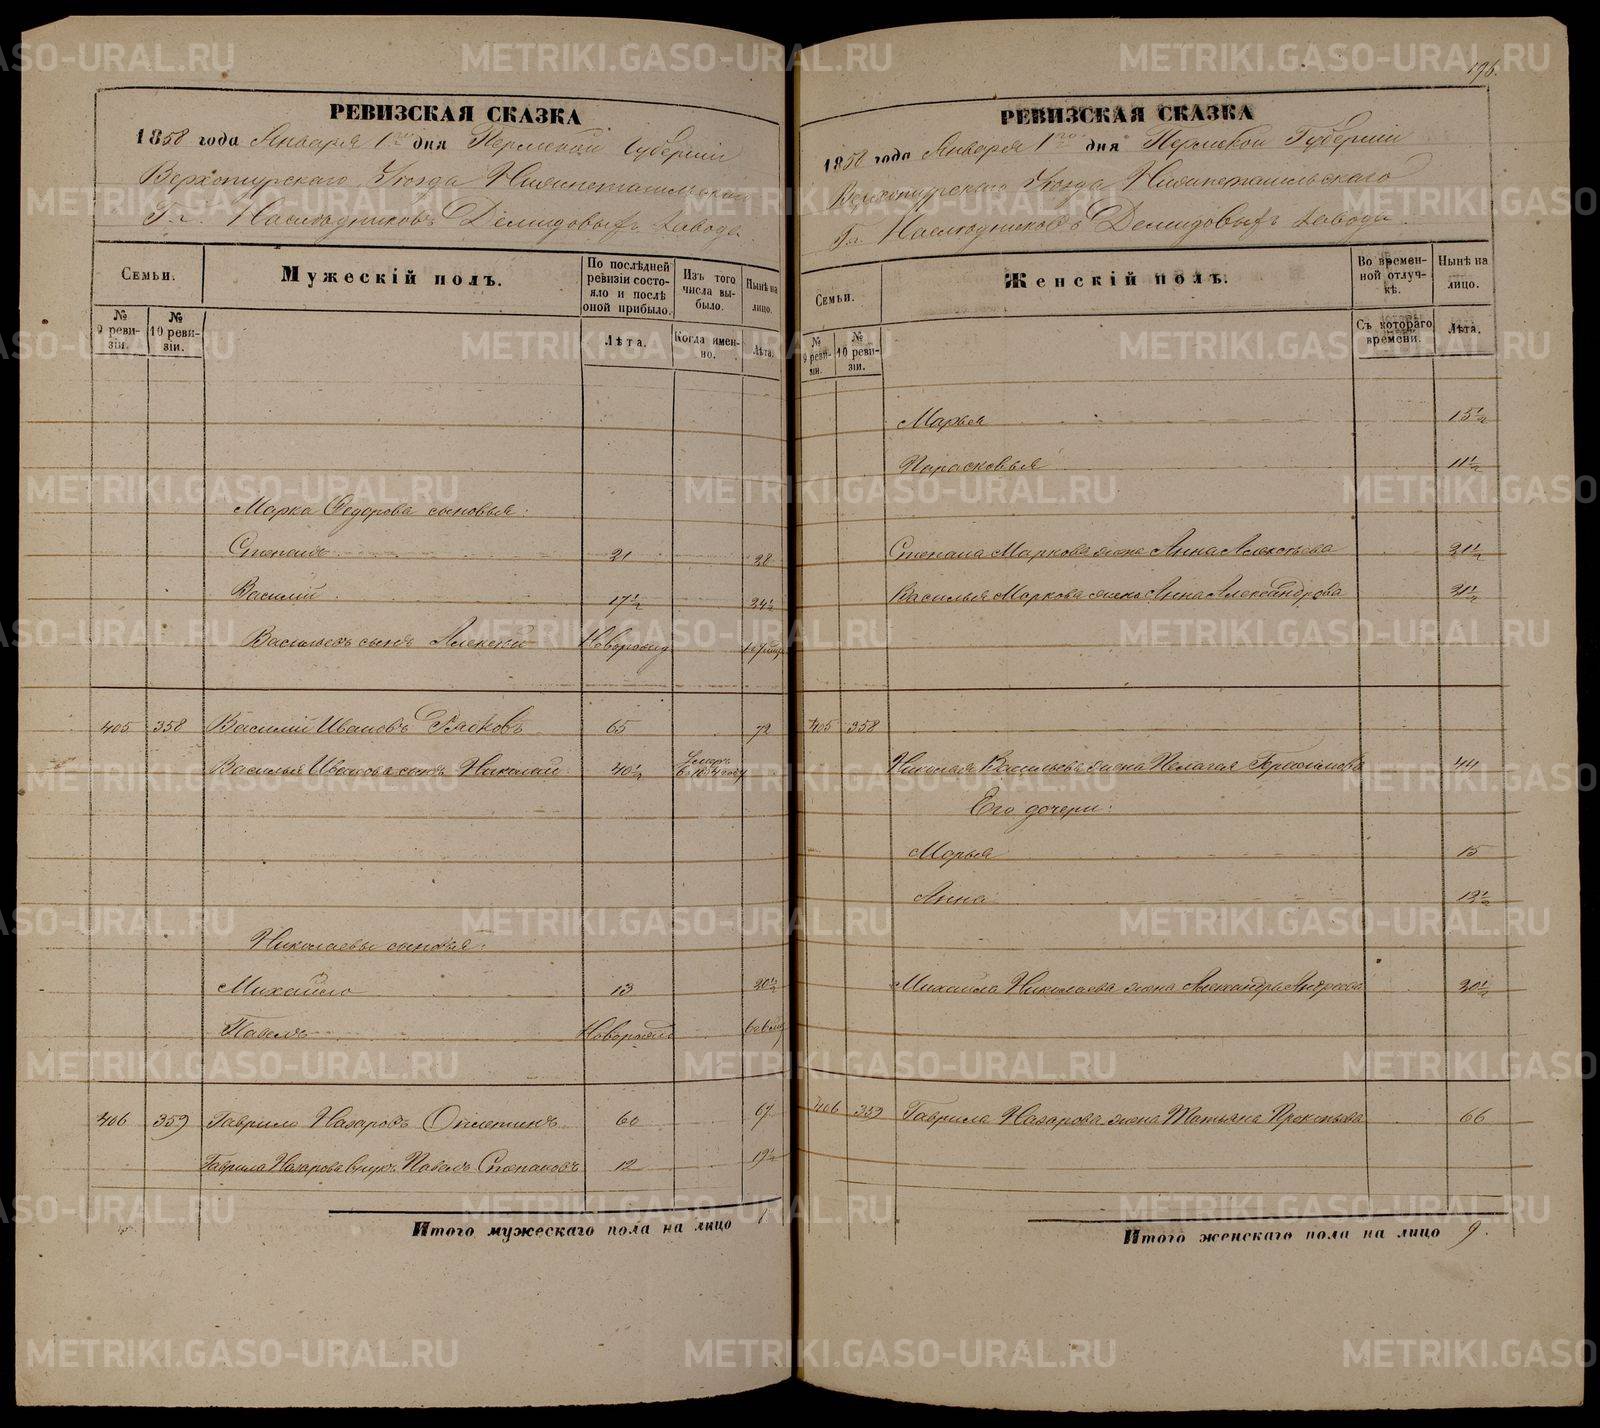 РЕВИЗСКАЯ СКАЗКА
1858 года Января 1го дня Пермской Губернии
Верхотурского Уезда Нижнетагильскаго
Гг. Наследниковъ Демидовыхъ завода
Семьи.
Мужескій полъ.
По послѣдней ревизіи состояло и послѣ оной прибыло.
Изъ того числа выбыло.
Нынѣ на лицо.
№ 9 ревизіи.
№ 10 ревизіи.
Лѣта.
Когда именно.
Лѣта.
Марка Федорова сыновья:
Степанъ 21 28
Василій 17½ 24½
Васильевъ сынъ Алексей Новорожд
405 358 Василій Ивановъ 65 72
Василья Иванова сынъ Николай 40½ Умеръ въ 1854 году
Николаевы сыновья:
Михайло 13 20½
Павелъ Новорожд
406 359 Гаврило Назаровъ 60 67
Гаврила Назарова внукъ Павелъ Степановъ 12 19½
Итого мужескаго пола на лицо
196.
РЕВИЗСКАЯ СКАЗКА
1858 года Января 1го дня Пермской Губерніи
Верхотурского Уезда Нижнетагильскаго
Гг. Наследниковъ Демидовыхъ завода
Семьи.
Женскій полъ.
Во временной отлучкѣ.
Нынѣ на лицо.
№ 9 ревизіи.
№ 10 ревизіи.
Съ котораго времени.
Лѣта.
Марья 15½
Парасковья 11½
Степана Маркова жена Анна Алексѣева 21½
Василья Маркова жена Анна Александрова 21½
405 358
Николая Васильева жена Пелагея 44
Его дочери:
Марья 15
Анна 12½
Михаила Николаева жена Александра Андреева 20½
406 359 Гаврила Назарова жена Татьяна Прокопьева 66
Итого женскаго пола на лицо 9.
METRIKI.GASO-URAL.RU